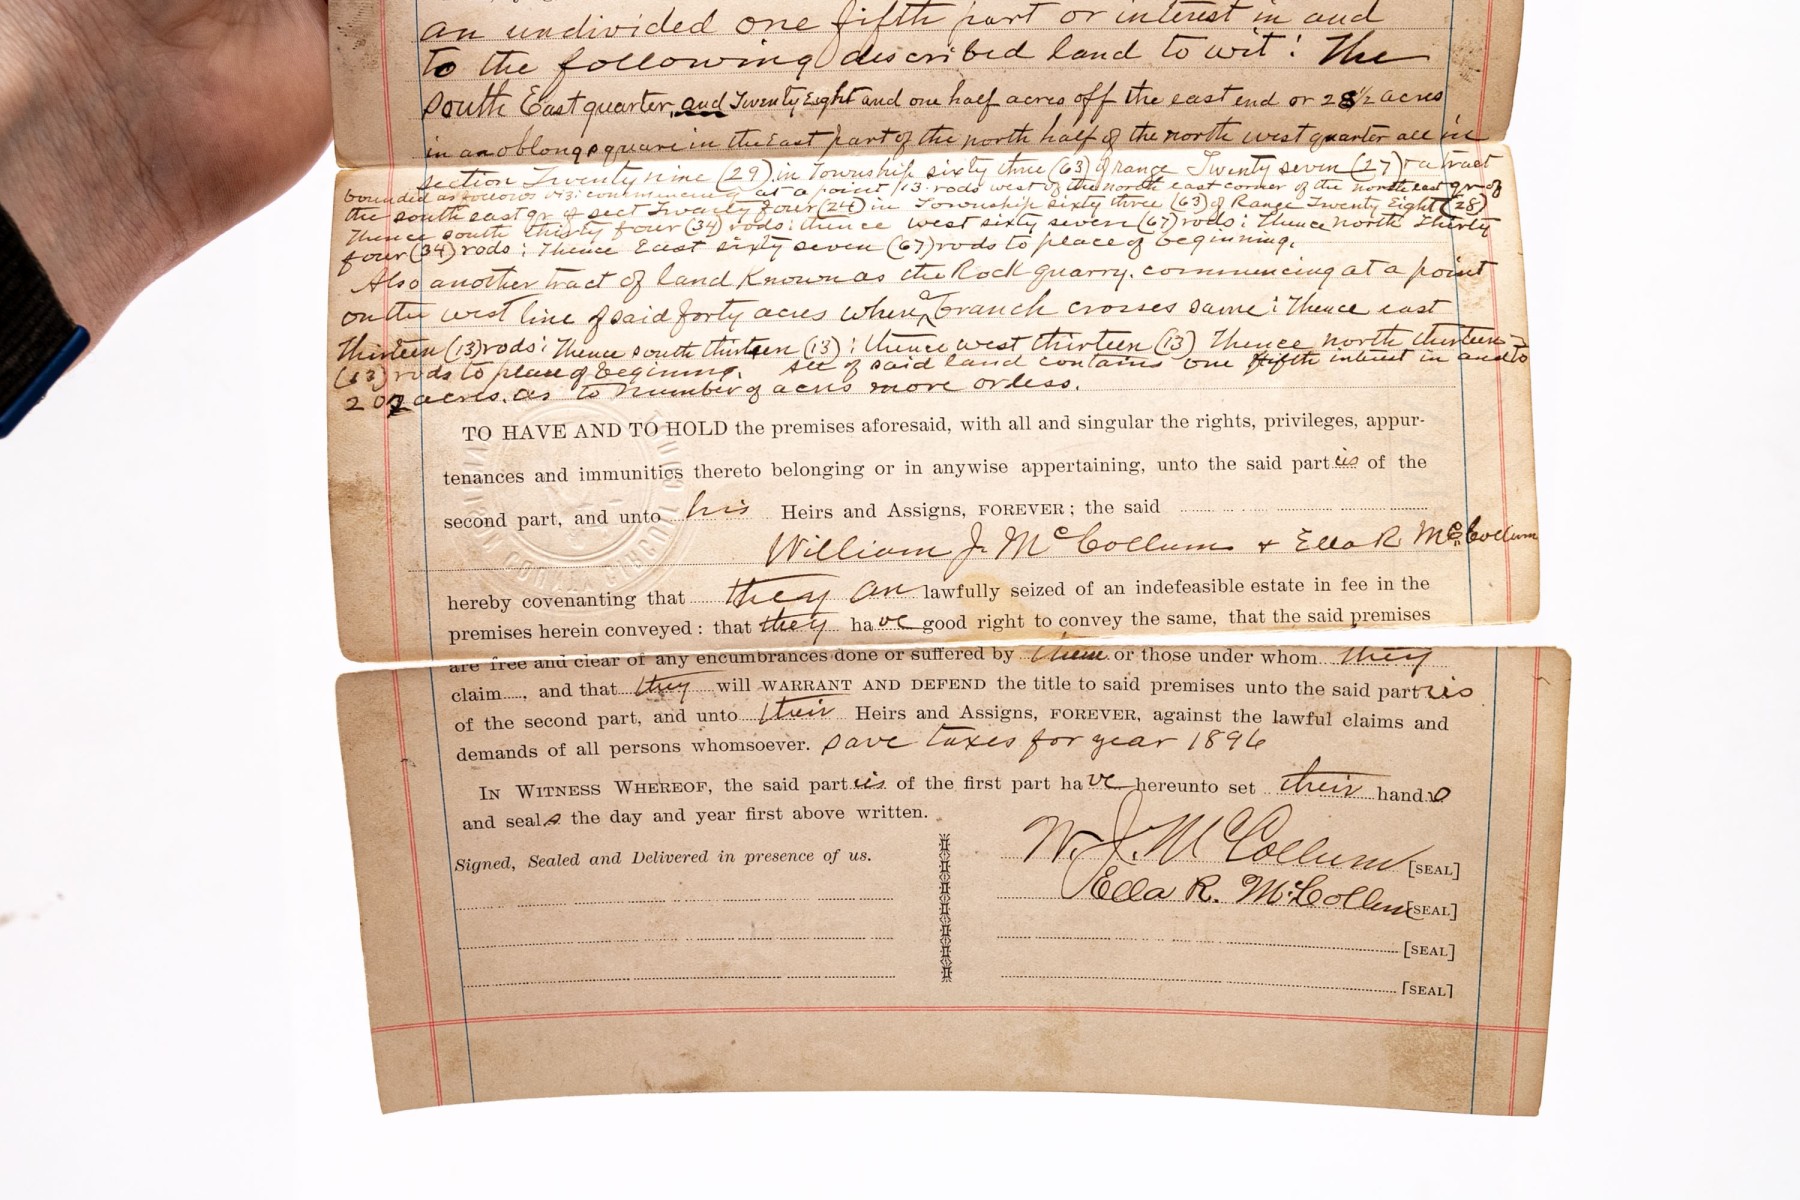 an undivided one fifth part or interest in and
to the following described land to wit: The
South East quarter, and Twenty Eight and one half acres off the east end or 28 1/2 acres
in an oblong square in the East part of the north half of the north west quarter all in
section Twenty nine (29) in Township sixty three (63) of range Twenty seven (27) + a tract
bounded as follows viz: commencing at a point 13 rods west of the north east corner of the north east qr of
the south east qr of sect Twenty four (24) in Township sixty three (63) of Range Twenty Eight (28)
Thence south thirty four (34) rods: thence west sixty seven (67) rods: Thence north Thirty
four (34) rods: Thence East sixty seven (67) rods to place of beginning.
Also another tract of land Known as the Rock quarry. commencing at a point
on the west line of said forty acres where a branch crosses same: Thence east
Thirteen (13) rods: Thence south thirteen (13): thence west thirteen (13) Thence north thirteen
(13) rods to place of beginning. All of said land contains one fifth interest in and to
202 acres. as to number of acres more or less.
TO HAVE AND TO HOLD the premises aforesaid, with all and singular the rights, privileges, appur-
tenances and immunities thereto belonging or in anywise appertaining, unto the said parties of the
second part, and unto his Heirs and Assigns, FOREVER; the said
William J. McCollum + Ella R McCollum
hereby covenanting that they are lawfully seized of an indefeasible estate in fee in the
premises herein conveyed: that they have good right to convey the same, that the said premises
are free and clear of any encumbrances done or suffered by them or those under whom they
claim, and that they will WARRANT AND DEFEND the title to said premises unto the said parties
of the second part, and unto their Heirs and Assigns, FOREVER, against the lawful claims and
demands of all persons whomsoever. save taxes for year 1896
IN WITNESS WHEREOF, the said parties of the first part have hereunto set their hands
and seals the day and year first above written.
Signed, Sealed and Delivered in presence of us.
W. J. McCollum [SEAL]
Ella R. McCollum [SEAL]
[SEAL]
[SEAL]